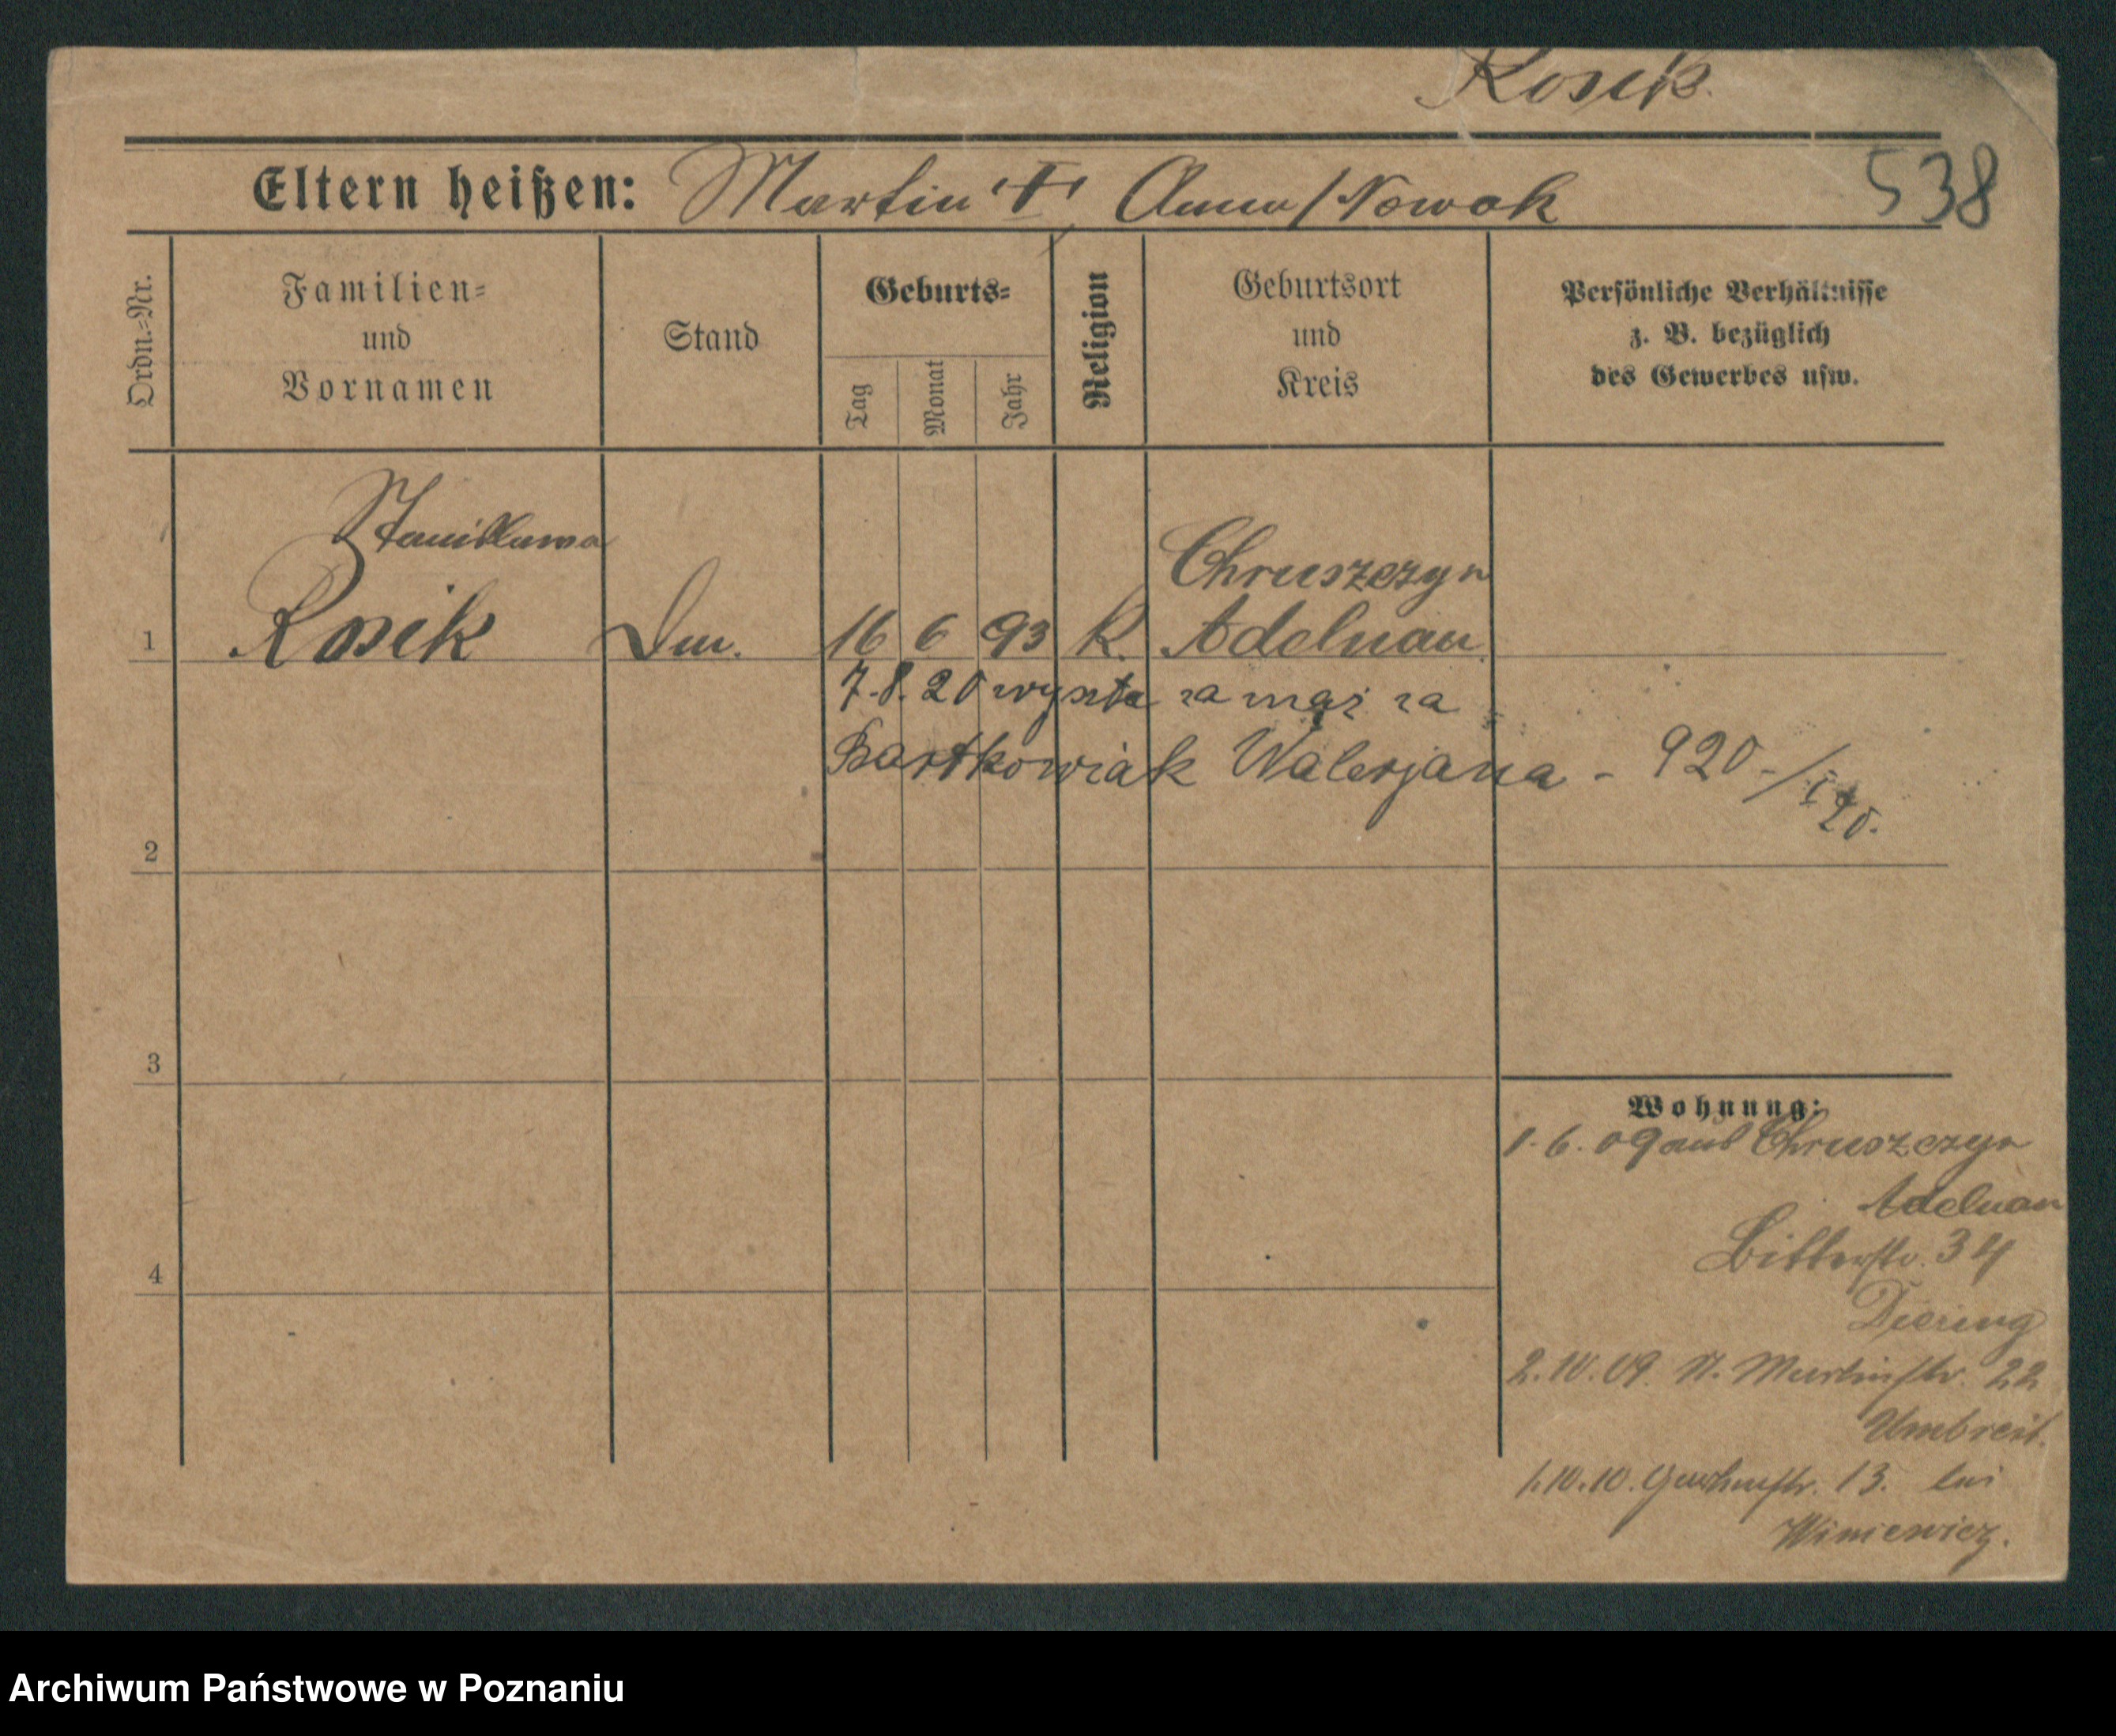 Rosik.
Eltern heißen: Martin † Anna / Nowak
538
Ordn.-Nr.
Familien-
und
Vornamen
Stand
Geburts-
Tag
Monat
Jahr
Religion
Geburtsort
und
Kreis
Persönliche Verhältnisse
z. B. bezüglich
des Gewerbes usw.
Stanisława
Chruszczyn
1 Rosik 16 6 93 K. Adelnau
7.8.20 wyszła za mąż za
Bartkowiak Walerjana - 920 -/
20.
2
3
4
Wohnung:
1.6.09 aus Chruszczyn
Adelnau
Ritterstr. 34
Diering
2.10.09. St. Martinstr. 22
Umbreit.
1.10.10. 13. bei
Winiewicz.
Archiwum Państwowe w Poznaniu